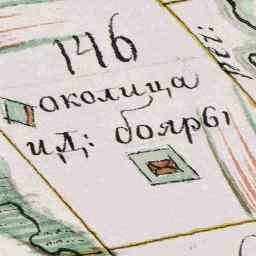 146
околица
и,д,: бояры